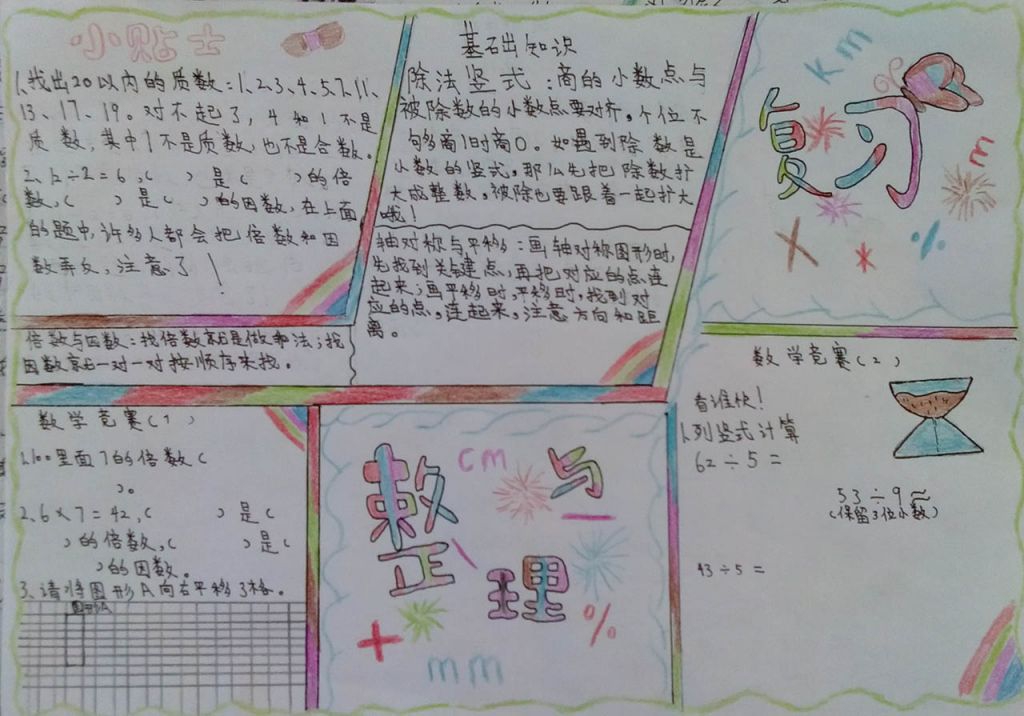 小贴士
1、找出20以内的质数:1、2、3、4、5、7、11、
13、17、19。对不起了,4和1不是
质数,其中1不是质数,也不是合数。
2、12÷2=6,( )是( )的倍
数,( )是( )的因数,在上面
的题中,许多人都会把倍数和因
数弄反,注意了!
倍数与因数:找倍数就是做乘法;找
因数就一对一对按顺序来找。
基础知识
除法竖式:商的小数点与
被除数的小数点要对齐。个位不
够商1时商0。如遇到除数是
小数的竖式,那么先把除数扩
大成整数,被除也要跟着一起扩大
哦!
轴对称与平移:画轴对称图形时,
先找到关键点,再把对应的点连
起来;画平移时,平移时,找到对
应的点,连起来,注意方向和距
离。
km
复习
m
×
*
%
数学竞赛(1)
1、100里面7的倍数(
)。
2、6×7=42,( )是(
)的倍数,( )是(
)的因数。
3、请将图形A向右平移3格。
图形A
cm
整与
理
+
%
mm
数学竞赛(2)
看谁快!
1、列竖式计算
62÷5=
53÷9≈
(保留3位小数)
43÷5=